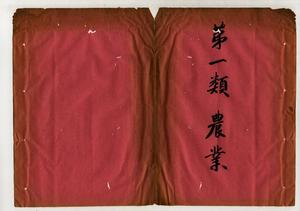 第一類 農業